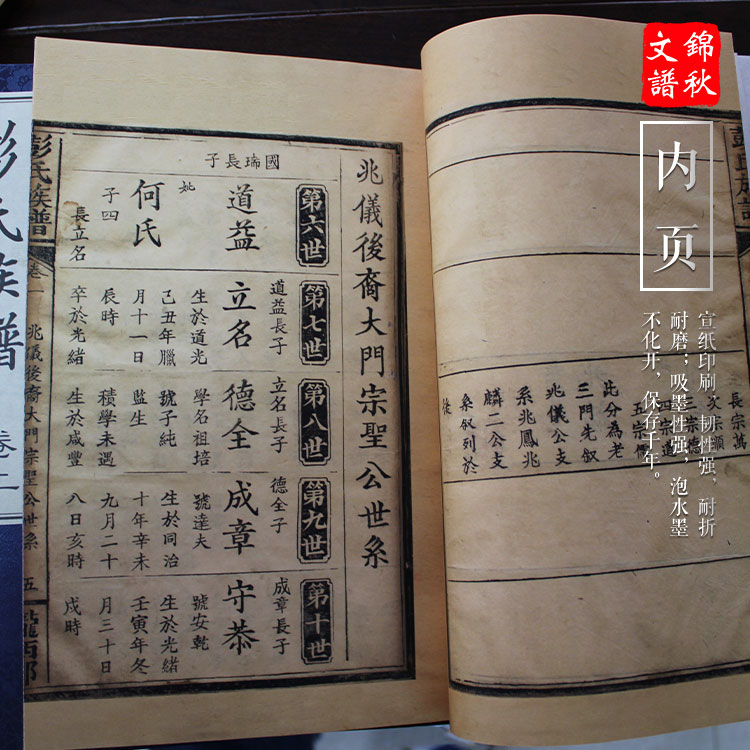 錦秋
文譜
内页
宣纸印刷,韧性强,耐折
耐磨;吸墨性强,泡水墨
不化开,保存千年。
長宗萬
次宗順
三宗德
四宗道
五宗儒
此分為老
三門先叙
兆儀公支
系兆鳳兆
麟二公支
系叙列於
後
兆儀後裔大門宗聖公世系
第六世
國瑞長子
道益
妣
何氏
子四
長立名
第七世
道益長子
立名
生於道光
己丑年臘
月十一日
辰時
卒於光緒
第八世
立名長子
德全
學名祖培
號子純
監生
積學未遇
生於咸豐
第九世
德全子
成章
號達夫
生於同治
十年辛未
九月二十
八日亥時
第十世
成章長子
守恭
號安乾
生於光緒
壬寅年冬
月三十日
戌時
彭氏族譜
卷一
兆儀後裔大門宗聖公世系
五
隴西郡
彭氏族譜